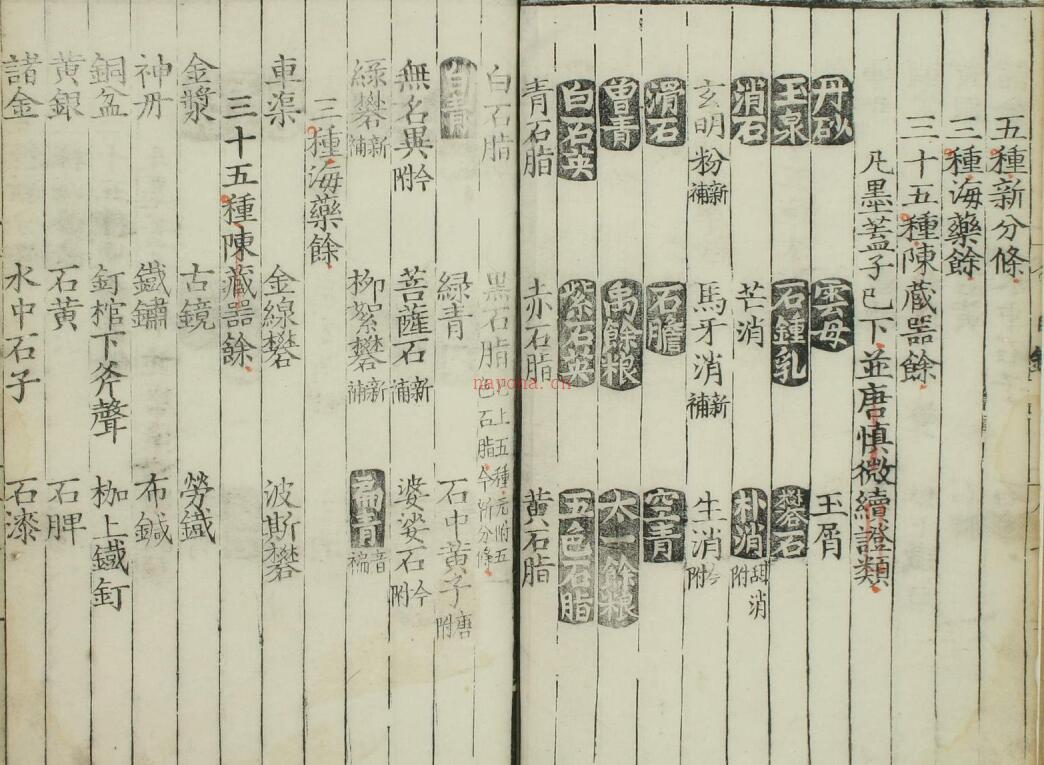 五種新分條
三種海藥餘
三十五種陳藏器餘
凡墨蓋子已下並唐慎微續證類
丹砂 雲母 玉屑
玉泉 石鍾乳 礬石
消石 芒消 朴消甜消附
玄明粉新補 馬牙消新補 生消今附
滑石 石膽 空青
曾青 禹餘粮 太一餘粮
白石英 紫石英 五色石脂
青石脂 赤石脂 黄石脂
白石脂 黑石脂已上五種元附五色石脂今新分條
白青 緑青 石中黄子唐附
無名異今附 菩薩石新補 婆娑石今附
緑礬新補 柳絮礬新補 扁青音褊
三種海藥餘
車渠 金線礬 波斯礬
三十五種陳藏器餘
金漿 古鏡 勞鐵
神丹 鐵鏽 布鍼
銅盆 釘棺下斧聲 枷上鐵釘
黄銀 石黄 石脾
諸金 水中石子 石漆
nayona.cn